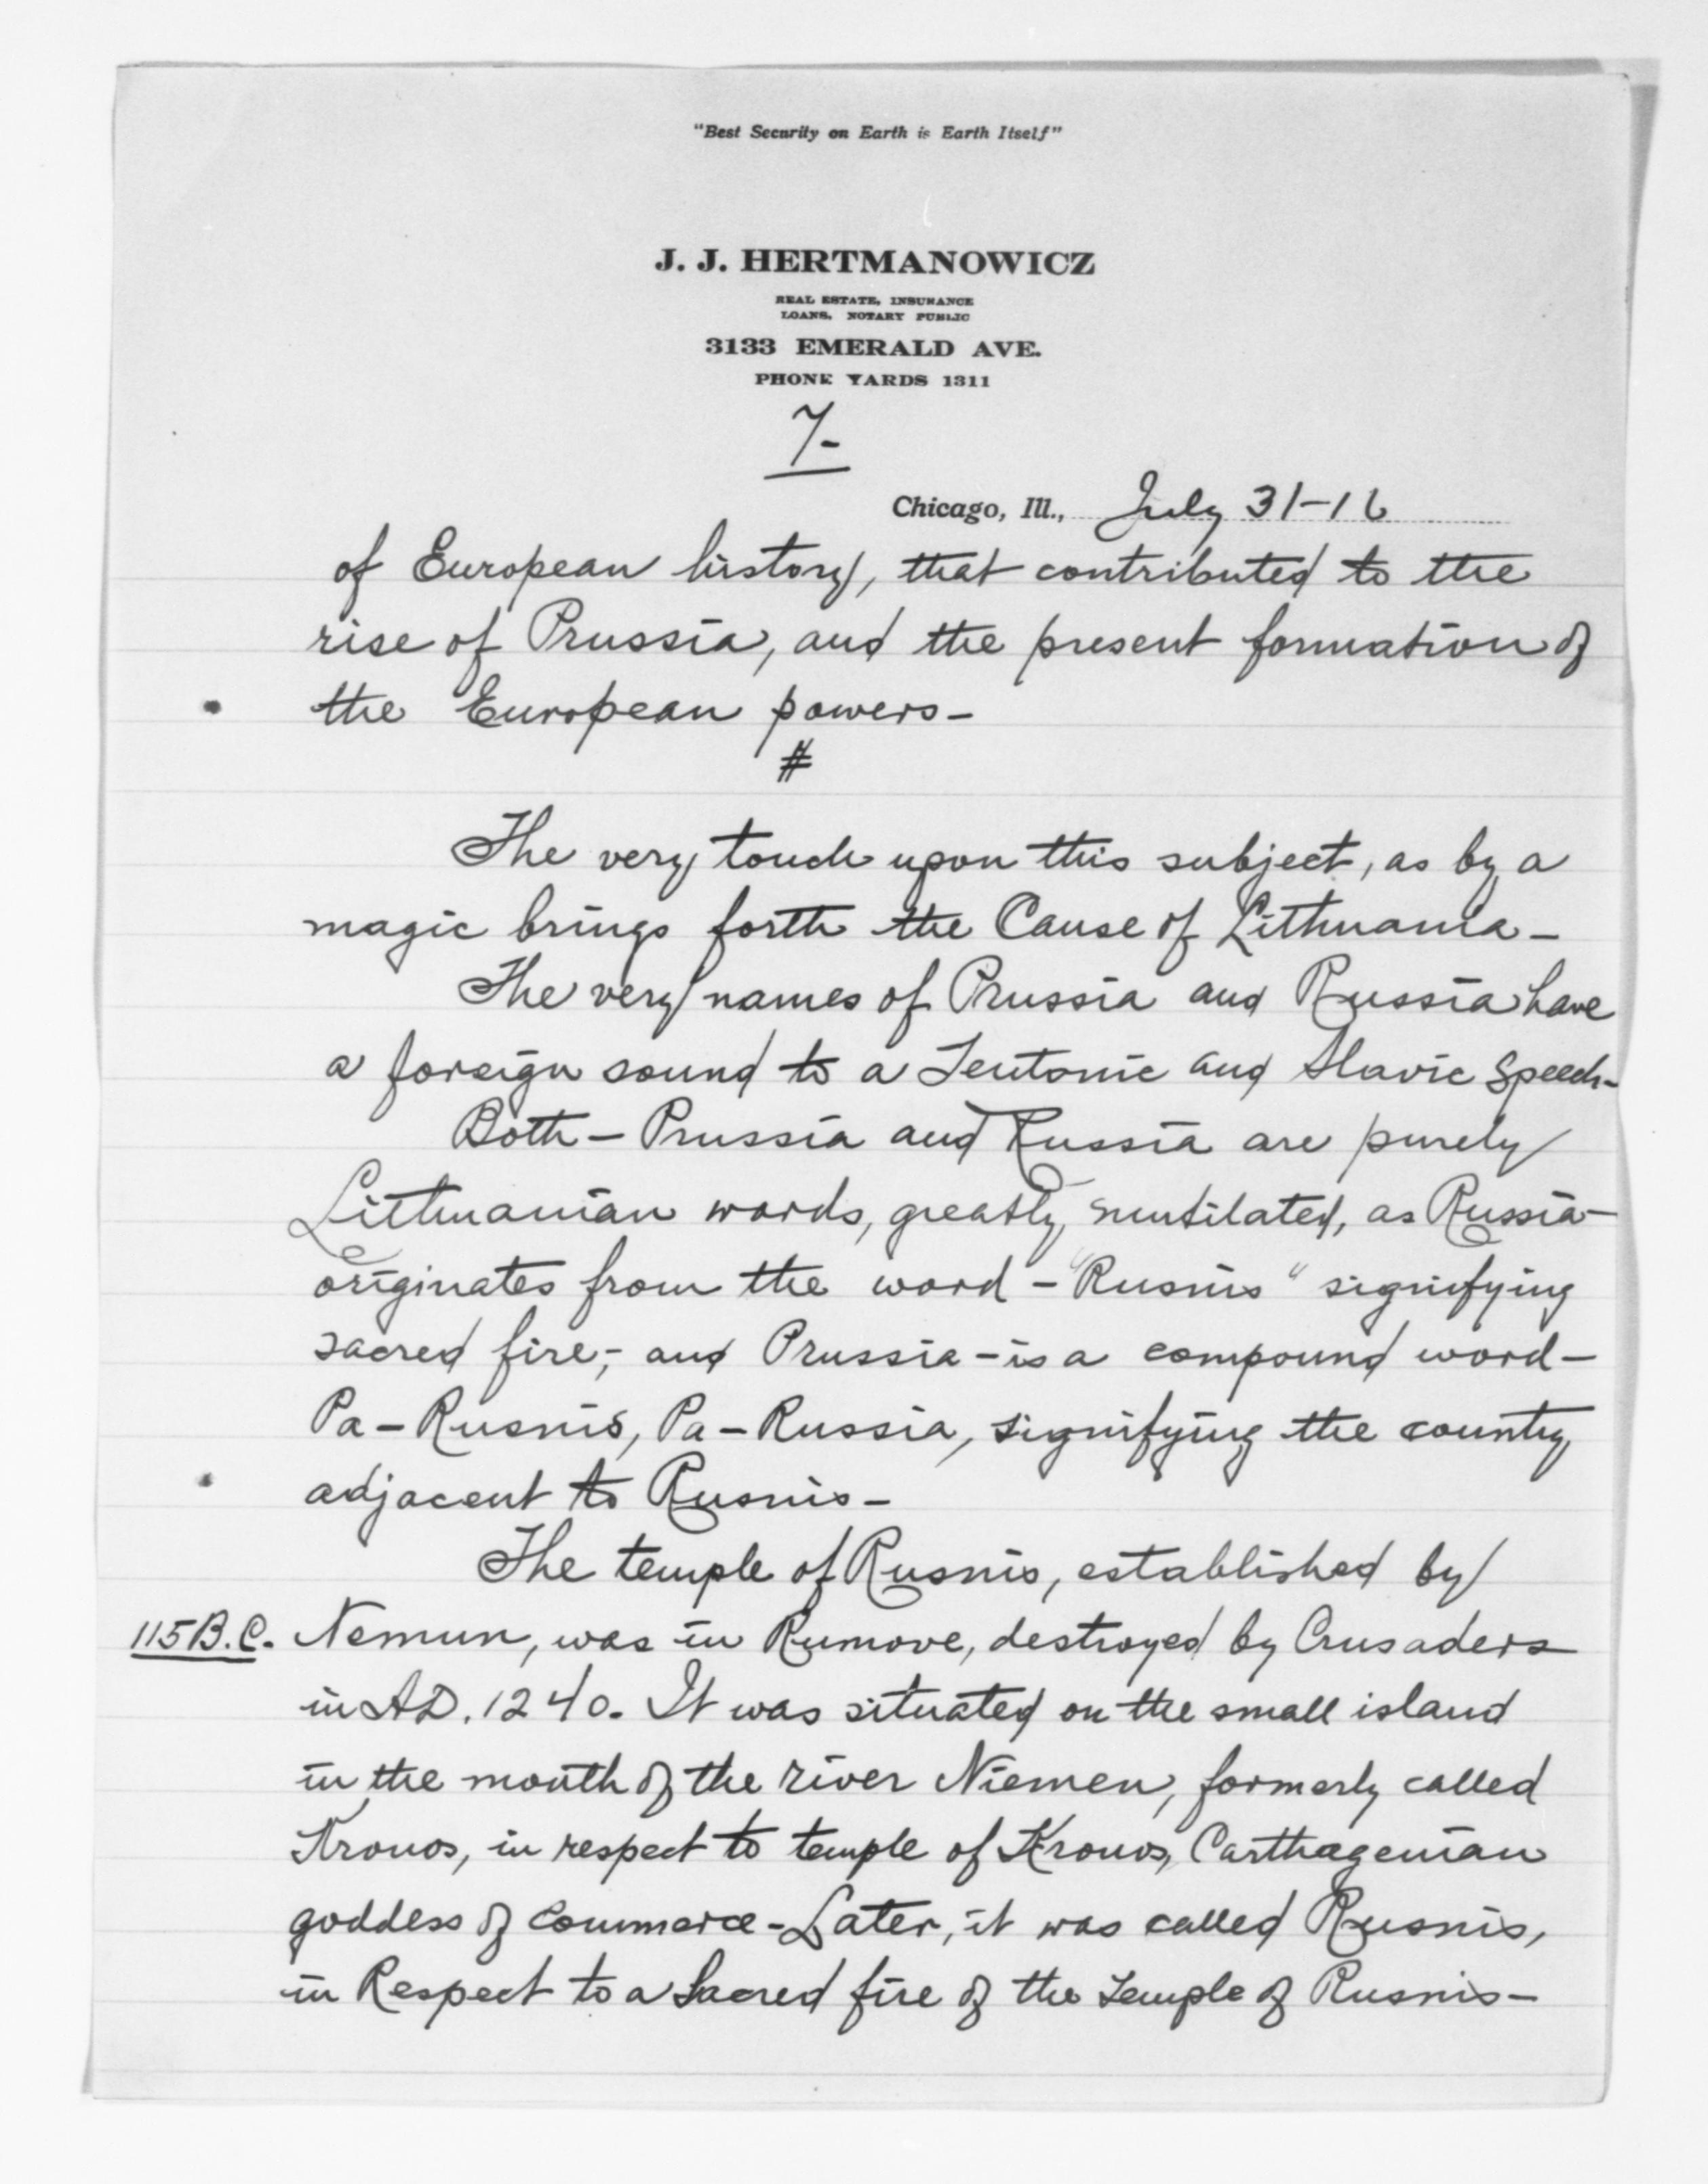 "Best Security on Earth is Earth Itself"
J. J. HERTMANOWICZ
REAL ESTATE, INSURANCE
LOANS, NOTARY PUBLIC
3133 EMERALD AVE.
PHONE YARDS 1311
7-
Chicago, Ill., July 31-16
of European history, that contributed to the
rise of Prussia, and the present formation of
the European powers-
#
The very touch upon this subject, as by a
magic brings forth the Cause of Lithuania-
The very names of Prussia and Russia have
a foreign sound to a Teutonic and Slavic Speech-
Both - Prussia and Russia are purely
Lithuanian words, greatly mutilated, as Russia-
originates from the word - "Rusnis" signifying
sacred fire;- and Prussia - is a compound word-
Pa-Rusnis, Pa-Russia, signifying the country
adjacent to Rusnis-
The temple of Rusnis, established by
115 B.C. Nemun, was in Rumove, destroyed by Crusaders
in AD. 1240. It was situated on the small island
in the mouth of the river Niemen, formerly called
Kronos, in respect to temple of Kronos, Carthagenian
goddess of Commerce - Later, it was called Rusnis,
in Respect to a Sacred fire of the Temple of Rusnis-